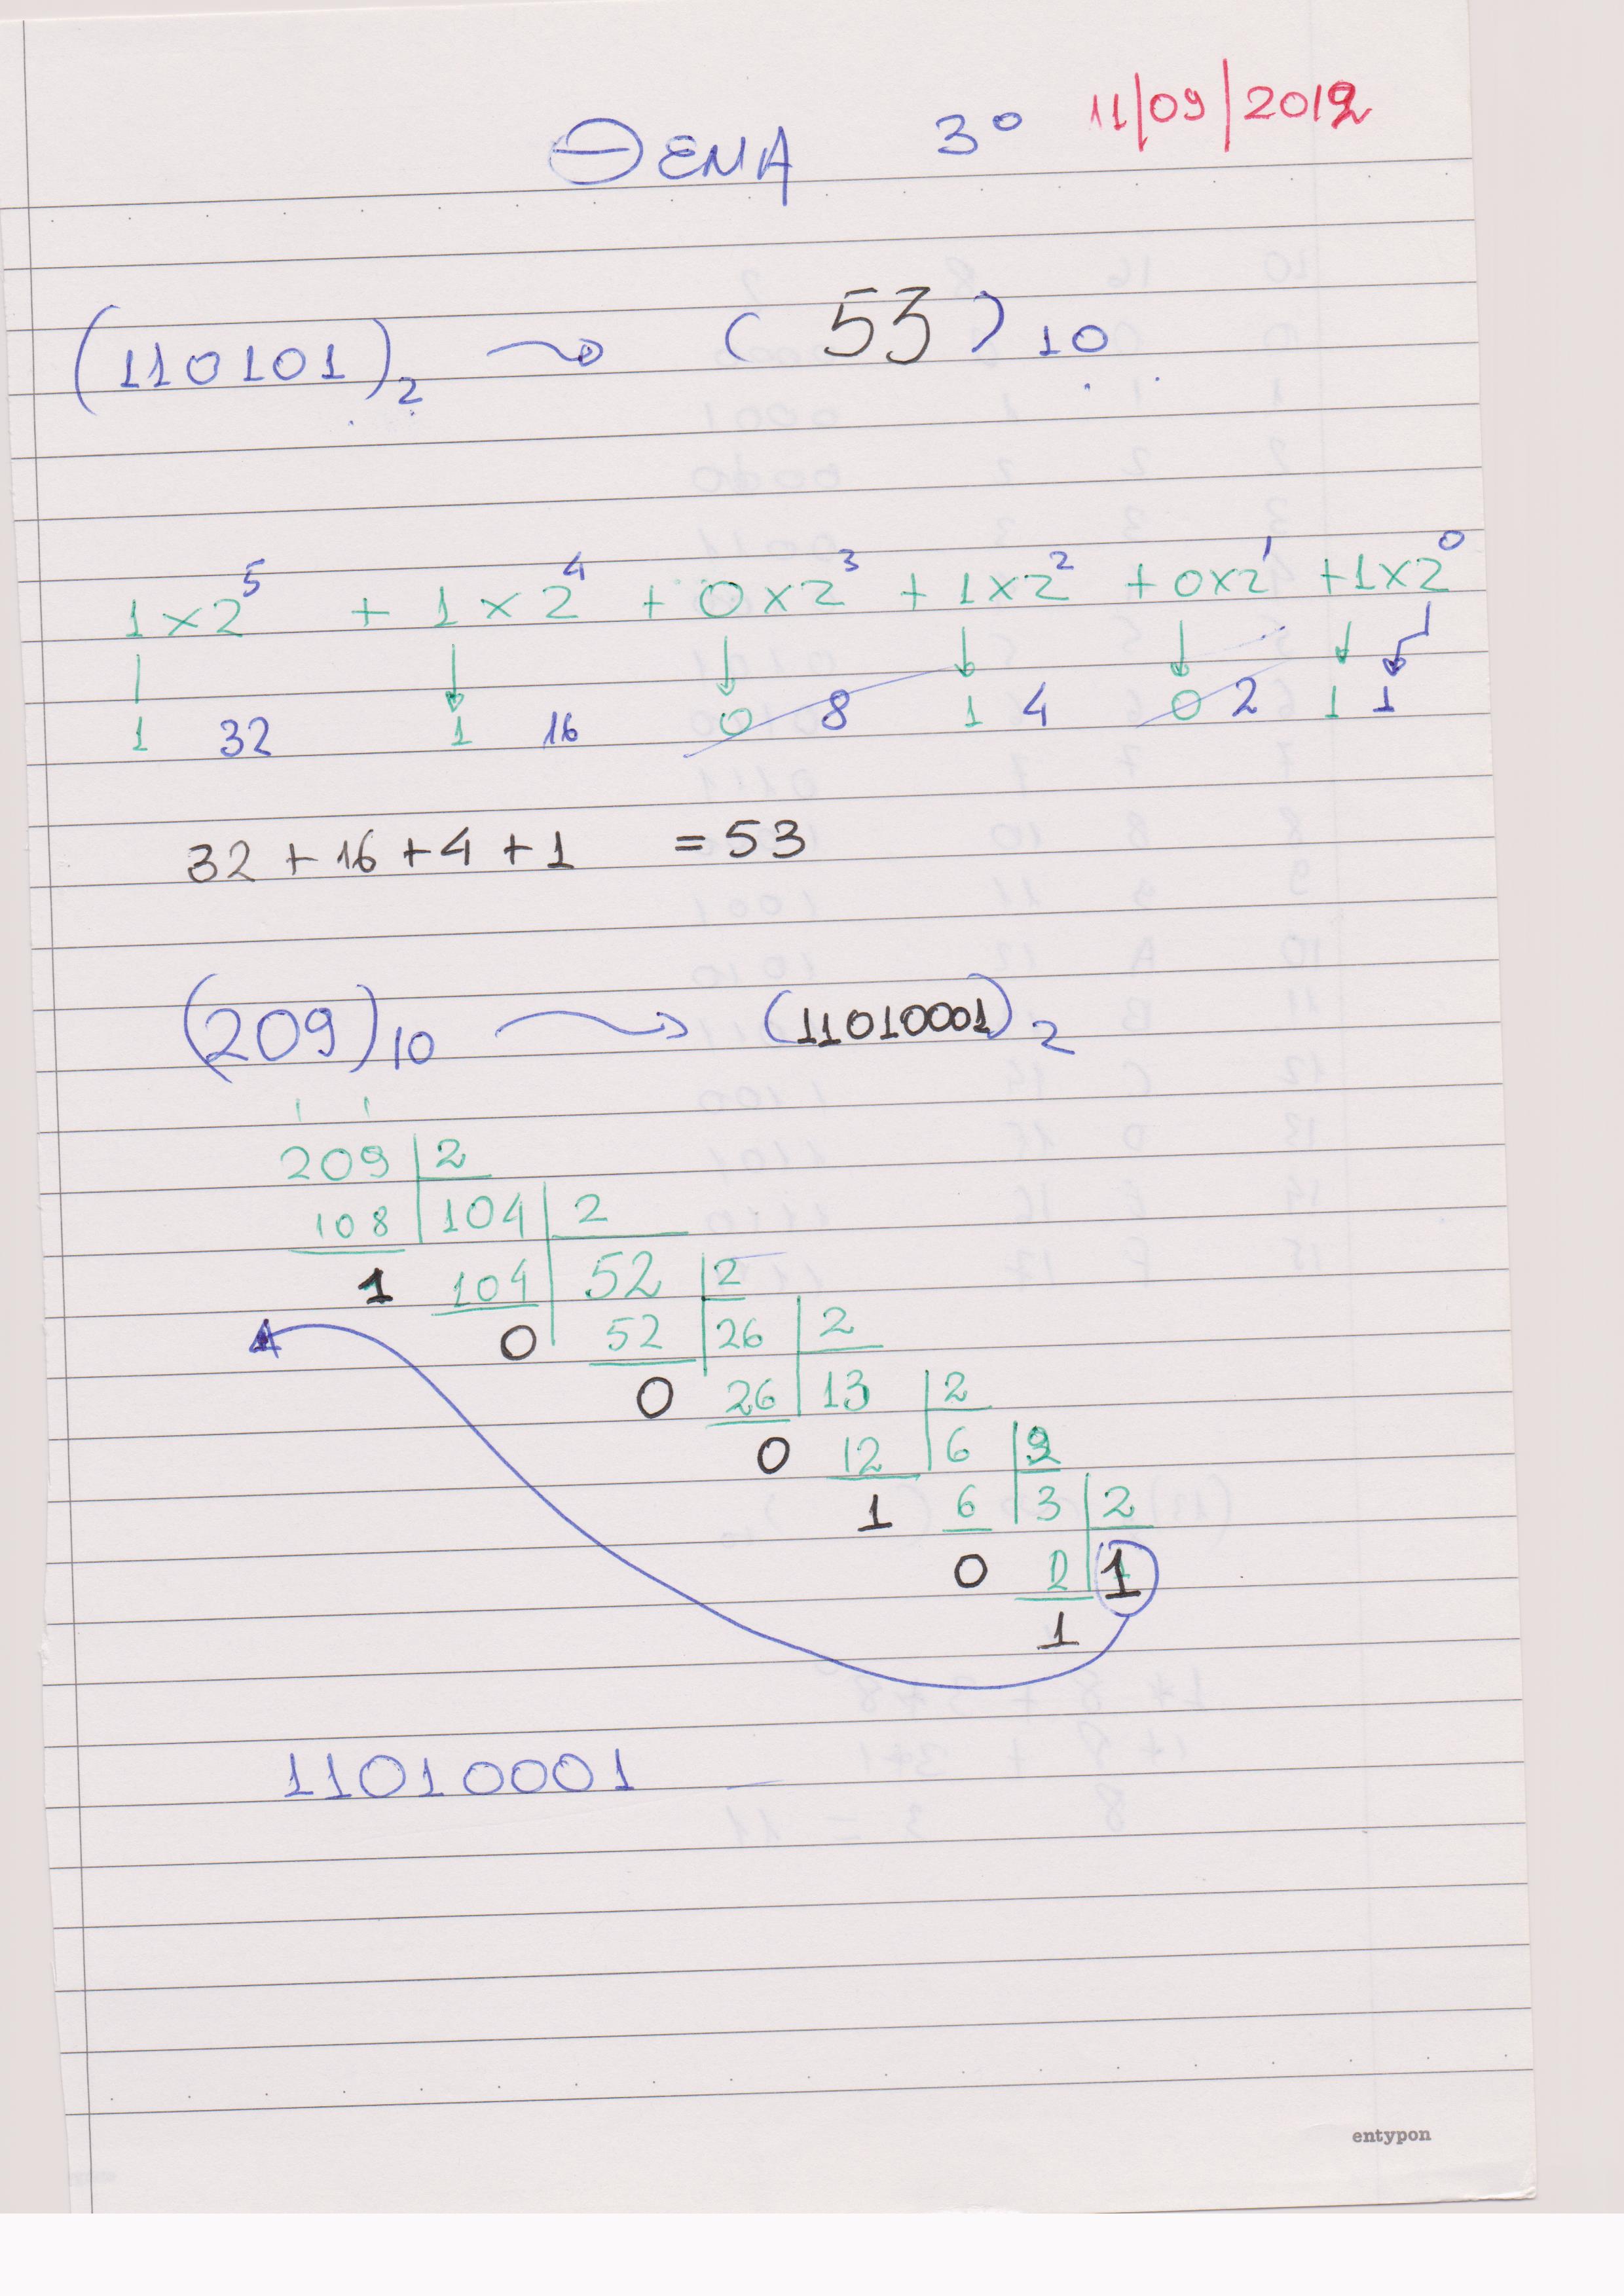 ΘΕΜΑ 3º 11/09/2012
(110101)₂ → (53)₁₀
1×2⁵ + 1×2⁴ + 0×2³ + 1×2² + 0×2¹ + 1×2⁰
1 32 1 16 0 8 1 4 0 2 1 1
32 + 16 + 4 + 1 = 53
(209)₁₀ → (11010001)₂
209 2
108 104 2
1 104 52 2
0 52 26 2
0 26 13 2
0 12 6 2
1 6 3 2
0 2 1
1
11010001
entypon